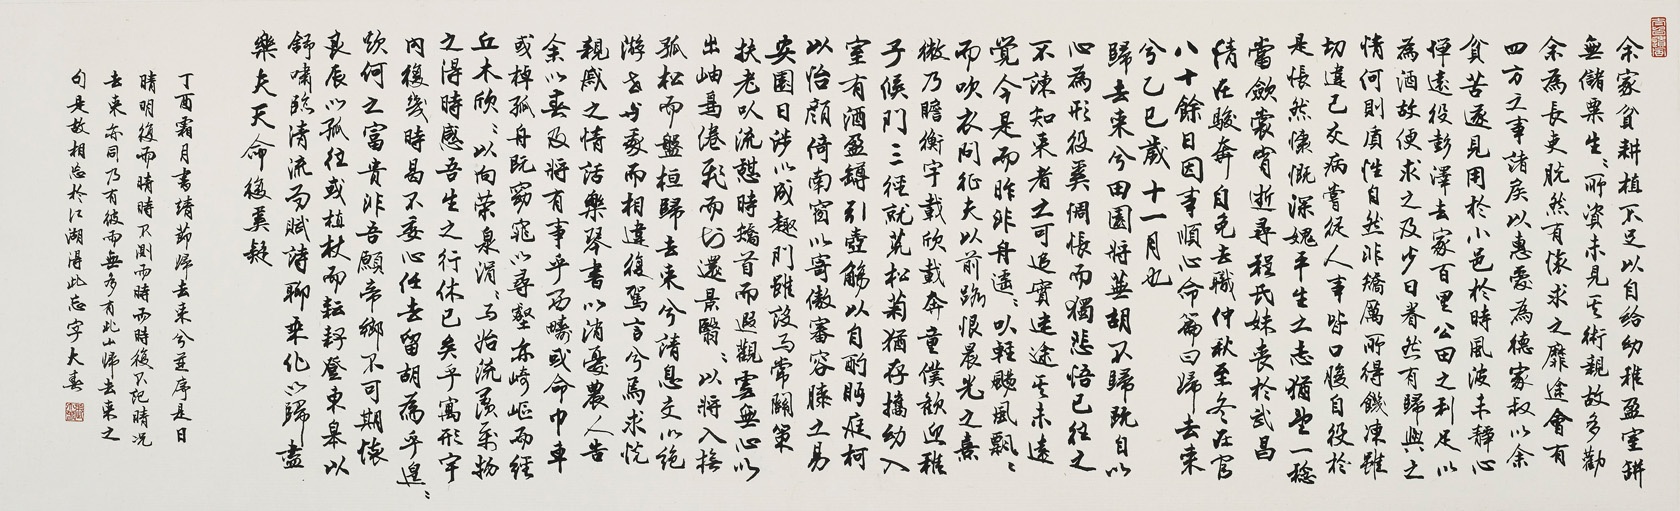 余家貧耕植不足以自給幼稚盈室缾
無儲粟生〻所資未見其術親故多勸
余為長吏脫然有懷求之靡途會有
四方之事諸侯以惠愛為德家叔以余
貧苦遂見用於小邑於時風波未靜心
憚遠役彭澤去家百里公田之利足以
為酒故便求之及少日眷然有歸與之
情何則質性自然非矯厲所得饑凍雖
切違己交病嘗從人事皆口腹自役於
是悵然慷慨深媿平生之志猶望一稔
當斂裳宵逝尋程氏妹喪於武昌
情在駿奔自免去職仲秋至冬在官
八十餘日因事順心命篇曰歸去來
兮乙巳歲十一月也
歸去來兮田園將蕪胡不歸既自以
心為形役奚惆悵而獨悲悟已往之
不諫知來者之可追實迷途其未遠
覺今是而昨非舟遙〻以輕颺風飄〻
而吹衣問征夫以前路恨晨光之熹
微乃瞻衡宇載欣載奔童僕歡迎稚
子候門三徑就荒松菊猶存攜幼入
室有酒盈罇引壺觴以自酌眄庭柯
以怡顏倚南窗以寄傲審容膝之易
安園日涉以成趣門雖設而常關策
扶老以流憩時矯首而遐觀雲無心以
出岫鳥倦飛而知還景翳〻以將入撫
孤松而盤桓歸去來兮請息交以絕
游世與我而相違復駕言兮焉求悅
親戚之情話樂琴書以消憂農人告
余以春及將有事乎西疇或命巾車
或棹孤舟既窈窕以尋壑亦崎嶇而經
丘木欣〻以向榮泉涓〻而始流羨萬物
之得時感吾生之行休已矣乎寓形宇
內復幾時曷不委心任去留胡為乎遑〻
欲何之富貴非吾願帝鄉不可期懷
良辰以孤往或植杖而耘耔登東皋以
舒嘯臨清流而賦詩聊乘化以歸盡
樂夫天命復奚疑
丁酉霜月書靖節歸去來兮並序是日
晴明復而晴時不測而時而時復不記晴况
去來亦同乃有彼而無多有此山歸去來之
句是故相忘於江湖得此忘字大春